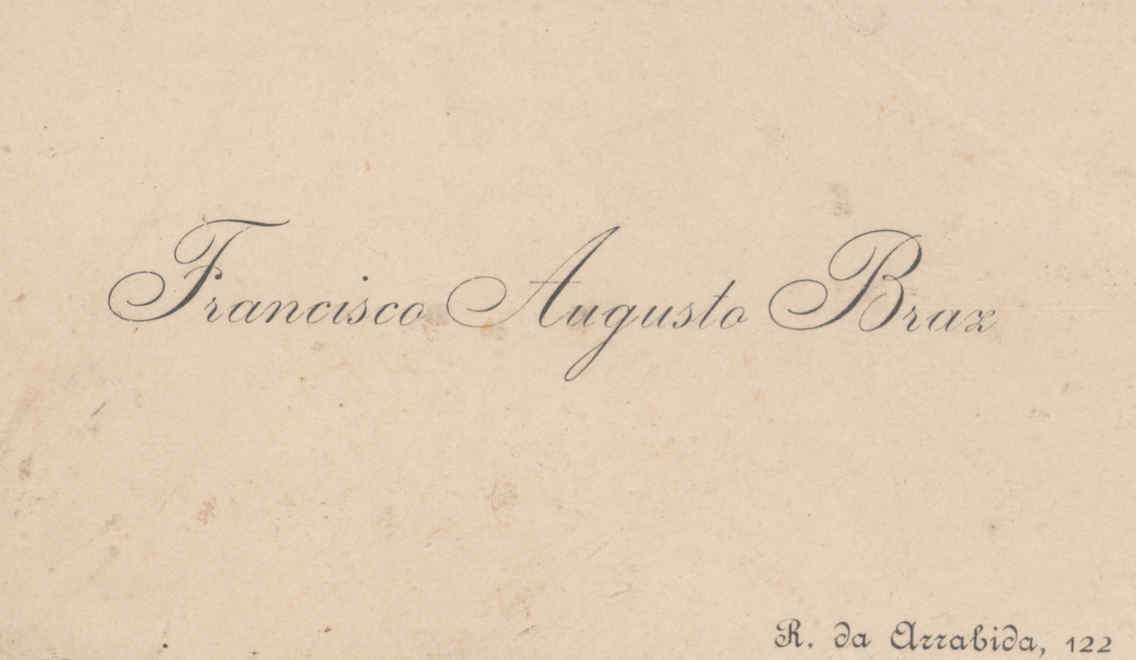 Francisco Augusto Braz
R. da Arrabida, 122